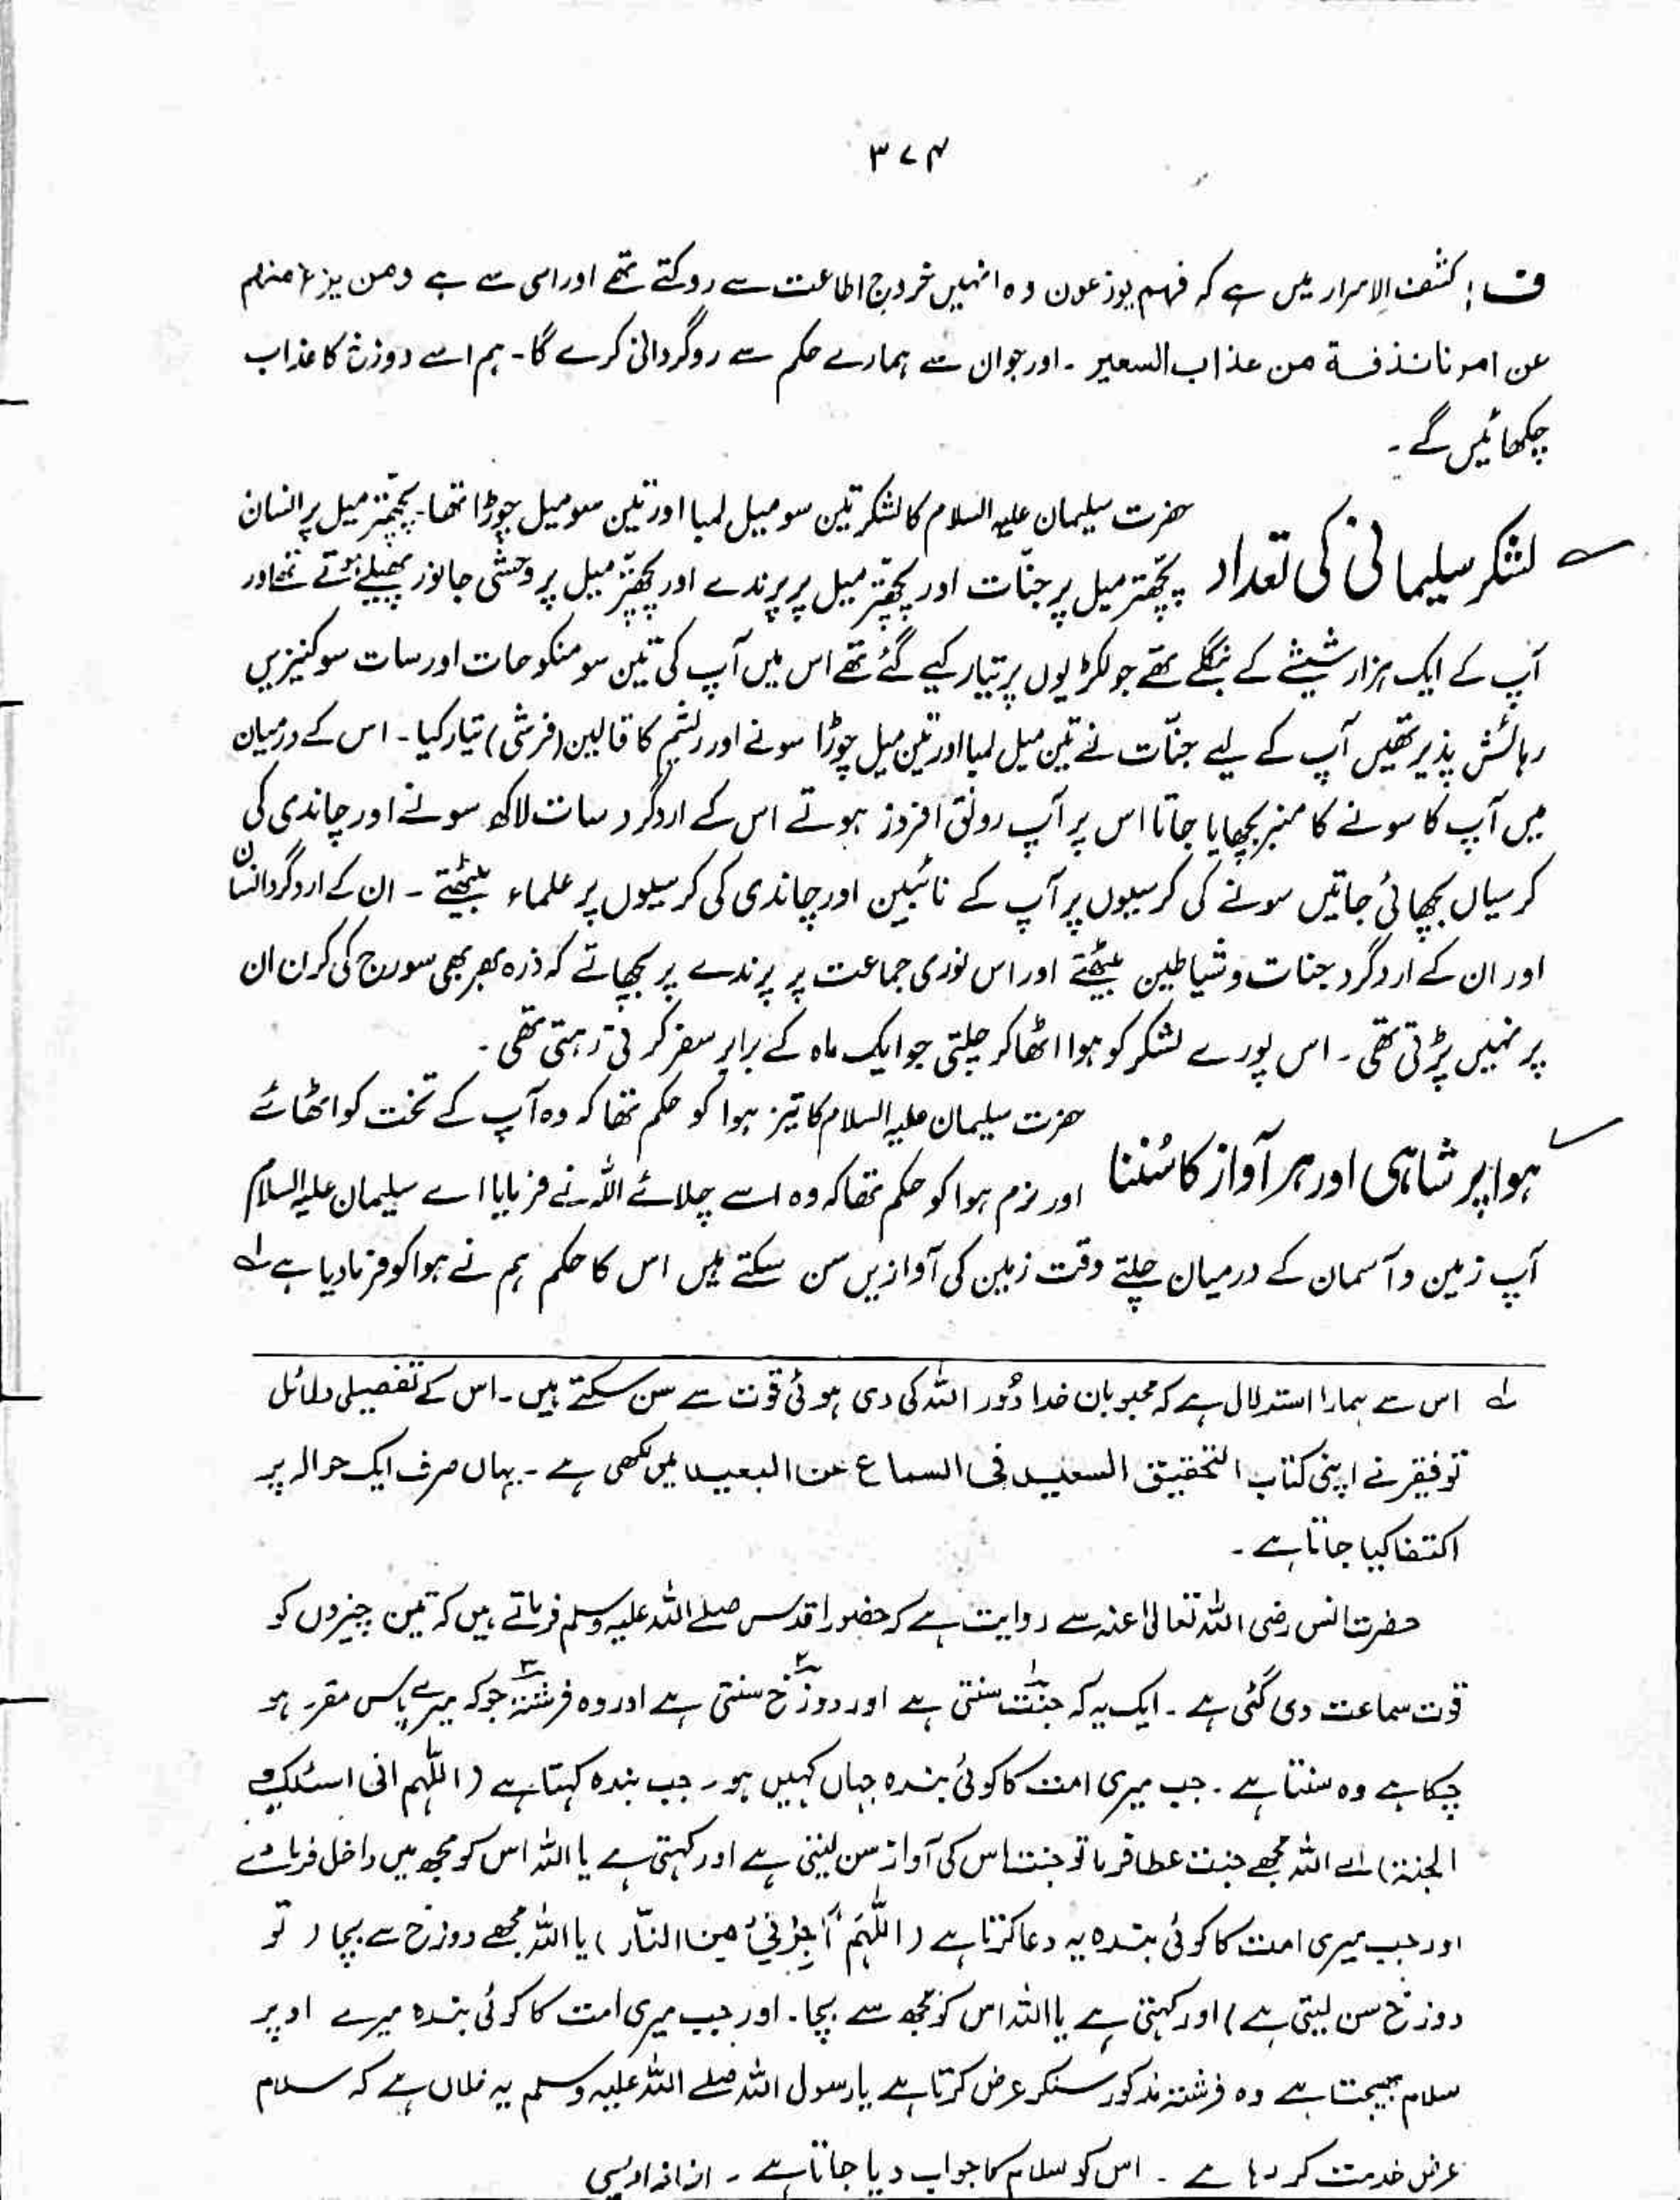 ۳۷۴
ف: کشف الاسرار میں ہے کہ فہم یوزعون وہ انہیں خروج اطاعت سے روکتے تھے اور اسی سے ہے ومن یزغ منہم
عن امرنا نذقہ من عذاب السعیر ۔ اور جو ان سے ہمارے حکم سے روگردانی کرے گا ۔ ہم اسے دوزخ کا عذاب
چکھائیں گے ۔
لشکر سلیمانی کی تعداد
حضرت سلیمان علیہ السلام کا لشکر تین سو میل لمبا اور تین سو میل چوڑا تھا ۔ پچھتّر میل پر انسان
پچھتّر میل پر جنّات اور پچھتّر میل پر پرندے اور پچھتّر میل پر وحشی جانور پھیلے ہوتے تھے اور
آپ کے ایک ہزار شیشے کے بنگلے تھے جو لکڑیوں پر تیار کیے گئے تھے اس میں آپ کی تین سو منکوحات اور سات سو کنیزیں
رہائش پذیر تھیں آپ کے لیے جنّات نے تین میل لمبا اور تین میل چوڑا سونے اور ریشم کا قالین (فرشی) تیار کیا ۔ اس کے درمیان
میں آپ کا سونے کا منبر بچھایا جاتا اس پر آپ رونق افروز ہوتے اس کے اردگرد سات لاکھ سونے اور چاندی کی
کرسیاں بچھائی جاتیں سونے کی کرسیوں پر آپ کے نائبین اور چاندی کی کرسیوں پر علماء بیٹھتے ۔ ان کے اردگرد انسان
اور ان کے اردگرد جنات و شیاطین بیٹھتے اور اس نوری جماعت پر پرندے پر بچھاتے کہ ذرہ بھر بھی سورج کی کرن ان
پر نہیں پڑتی تھی ۔ اس پورے لشکر کو ہوا اٹھا کر چلتی جو ایک ماہ کے برابر سفر کرتی رہتی تھی ۔
ہوا پر شاہی اور ہر آواز کا سُننا
حضرت سلیمان علیہ السلام کا تیز ہوا کو حکم تھا کہ وہ آپ کے تخت کو اٹھائے
اور نرم ہوا کو حکم تھا کہ وہ اسے چلائے اللہ نے فرمایا اے سلیمان علیہ السلام
آپ زمین و آسمان کے درمیان چلتے وقت زمین کی آوازیں سن سکتے ہیں اس کا حکم ہم نے ہوا کو فرما دیا ہے لہ
لہ اس سے ہمارا استدلال ہے کہ محبوبان خدا دُور اللہ کی دی ہوئی قوت سے سن سکتے ہیں ۔ اس کے تفصیلی دلائل
تو فقیر نے اپنی کتاب التحقیق السعید فی السماع عن البعید میں لکھی ہے ۔ یہاں صرف ایک حوالہ پر
اکتفا کیا جاتا ہے ۔
حضرت انس رضی اللہ تعالیٰ عنہ سے روایت ہے کہ حضور اقدس صلے اللہ علیہ وسلم فرماتے ہیں کہ تین چیزوں کو
قوت سماعت دی گئی ہے ۔ ایک یہ کہ جنّت۱ سنتی ہے اور دوزخ۲ سنتی ہے اور وہ فرشتہ۳ جو کہ میرے پاس مقرر ہو
چکا ہے وہ سنتا ہے ۔ جب میری امت کا کوئی بندہ جہاں کہیں ہو ۔ جب بندہ کہتا ہے (اللّٰہم انی اسئلک
الجنۃ) اے اللہ مجھے جنت عطا فرما تو جنت اس کی آواز سن لیتی ہے اور کہتی ہے یا اللہ اس کو مجھ میں داخل فرمادے
اور جب میری امت کا کوئی بندہ یہ دعا کرتا ہے (اللّٰہمَّ اَجِرْنِیْ من النّار) یا اللہ مجھے دوزخ سے بچا ) تو
دوزخ سن لیتی ہے) اور کہتی ہے یا اللہ اس کو مجھ سے بچا ۔ اور جب میری امت کا کوئی بندہ میرے اوپر
سلام بھیجتا ہے وہ فرشتہ مذکور سنکر عرض کرتا ہے یا رسول اللہ صلے اللہ علیہ وسلم یہ فلاں ہے کہ سلام
عرض خدمت کر رہا ہے ۔ اس کو سلام کا جواب دیا جاتا ہے ۔